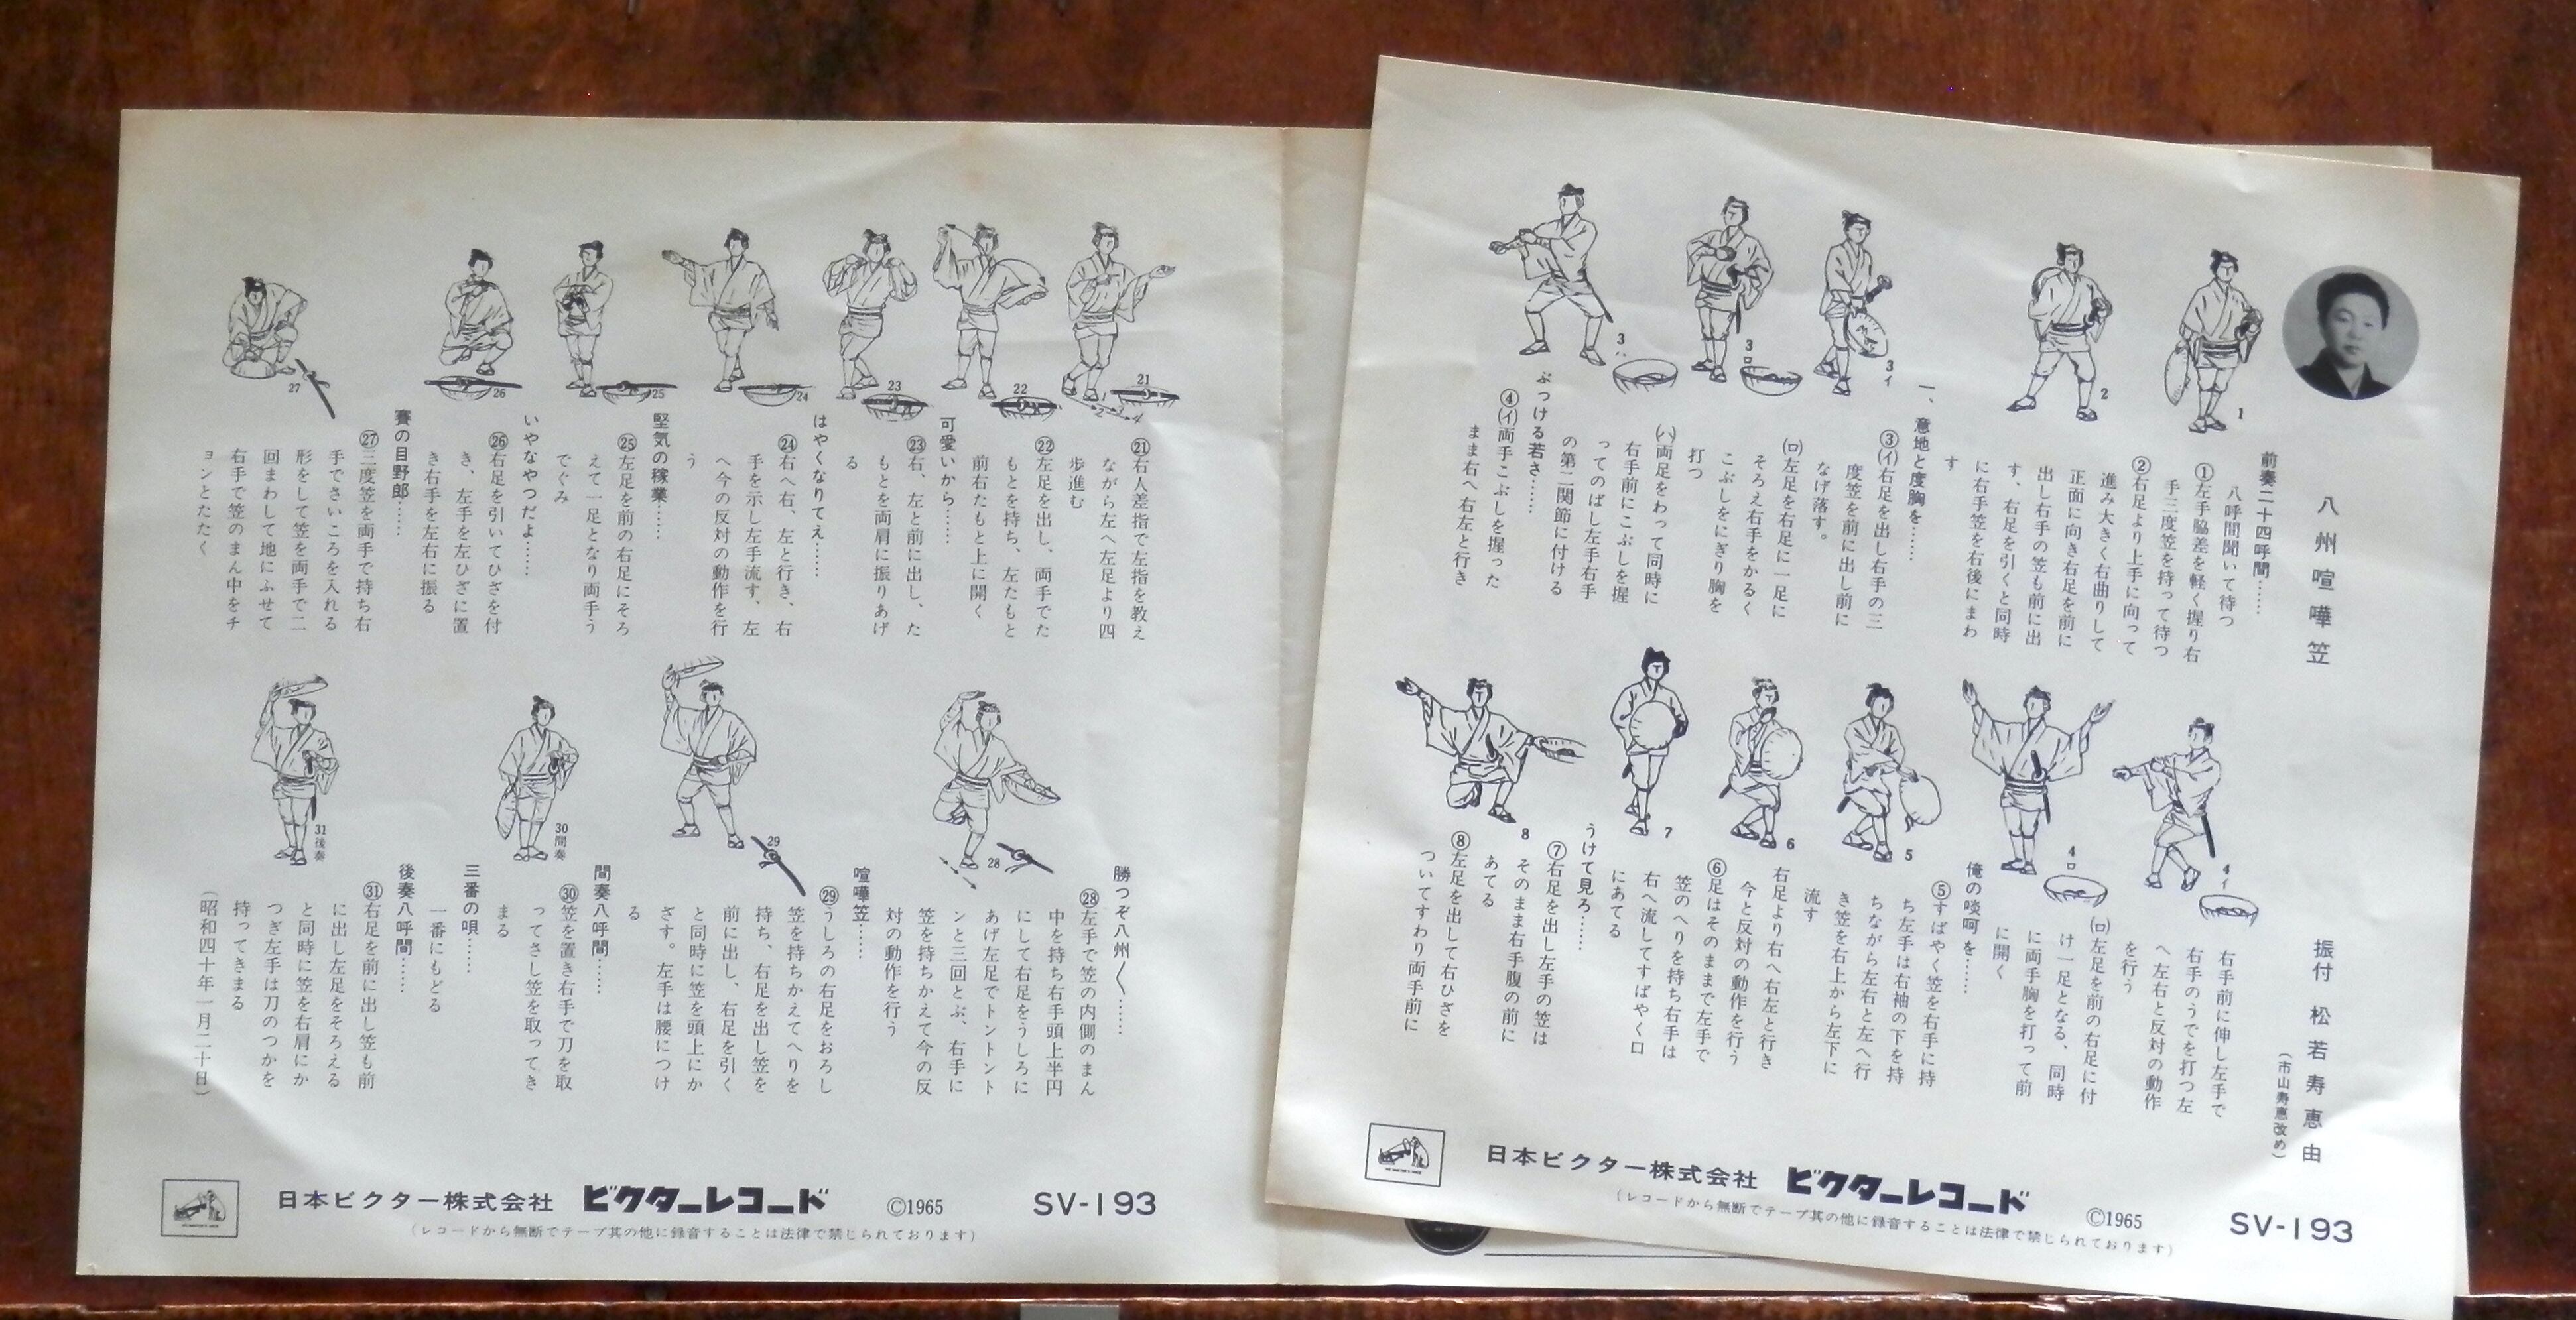 八州喧嘩笠
振付 松若寿恵由
(市山寿恵改め)
前奏二十四呼間……
八呼間聞いて待つ
①左手脇差を軽く握り右
手三度笠を持って待つ
②右足より上手に向って
進み大きく右曲りして
正面に向き右足を前に
出し右手の笠も前に出
す、右足を引くと同時
に右手笠を右後にまわ
す
一、意地と度胸を……
③(イ)右足を出し右手の三
度笠を前に出し前に
なげ落す。
(ロ)左足を右足に一足に
そろえ右手をかるく
こぶしをにぎり胸を
打つ
(ハ)両足をわって同時に
右手前にこぶしを握
ってのばし左手右手
の第二関節に付ける
ぶっける若さ……
④(イ)両手こぶしを握った
まま右へ右左と行き
1
2
3イ
3ロ
3
右手前に伸し左手で
右手のうでを打つ左
へ左右と反対の動作
を行う
(ロ)左足を前の右足に付
け一足となる、同時
に両手胸を打って前
に開く
俺の啖呵を……
⑤すばやく笠を右手に持
ち左手は右袖の下を持
ちながら左右と左へ行
き笠を右上から左下に
流す
右足より右へ右左と行き
今と反対の動作を行う
⑥足はそのままで左手で
笠のへりを持ち右手は
右へ流してすばやく口
にあてる
うけて見ろ……
⑦右足を出し左手の笠は
そのまま右手腹の前に
あてる
⑧左足を出して右ひざを
ついてすわり両手前に
4イ
4ロ
5
6
7
8
日本ビクター株式会社 ビクターレコード ©1965 SV-193
(レコードから無断でテープ其の他に録音することは法律で禁じられております)
21
22
23
24
25
26
27
㉑右人差指で左指を教え
ながら左へ左足より四
歩進む
㉒左足を出し、両手でた
もとを持ち、左たもと
前右たもと上に開く
可愛いから……
㉓右、左と前に出し、た
もとを両肩に振りあげ
る
はやくなりてえ……
㉔右へ右、左と行き、右
手を示し左手流す、左
へ今の反対の動作を行
う
堅気の稼業……
㉕左足を前の右足にそろ
えて一足となり両手う
でぐみ
いやなやつだよ……
㉖右足を引いてひざを付
き、左手を左ひざに置
き右手を左右に振る
賽の目野郎……
㉗三度笠を両手で持ち右
手でさいころを入れる
形をして笠を両手で二
回まわして地にふせて
右手で笠のまん中をチ
ョンとたたく
28
29
30間奏
31後奏
勝つぞ八州〱……
㉘左手で笠の内側のまん
中を持ち右手頭上半円
にして右足をうしろに
あげ左足でトントント
ンと三回とぶ、右手に
笠を持ちかえて今の反
対の動作を行う
喧嘩笠……
㉙うしろの右足をおろし
笠を持ちかえてへりを
持ち、右足を出し笠を
前に出し、右足を引く
と同時に笠を頭上にか
ざす。左手は腰につけ
る
間奏八呼間……
㉚笠を置き右手で刀を取
ってさし笠を取ってき
まる
三番の唄……
一番にもどる
後奏八呼間……
㉛右足を前に出し笠も前
に出し左足をそろえる
と同時に笠を右肩にか
つぎ左手は刀のつかを
持ってきまる
(昭和四十年一月二十日)
日本ビクター株式会社 ビクターレコード ©1965 SV-193
(レコードから無断でテープ其の他に録音することは法律で禁じられております)